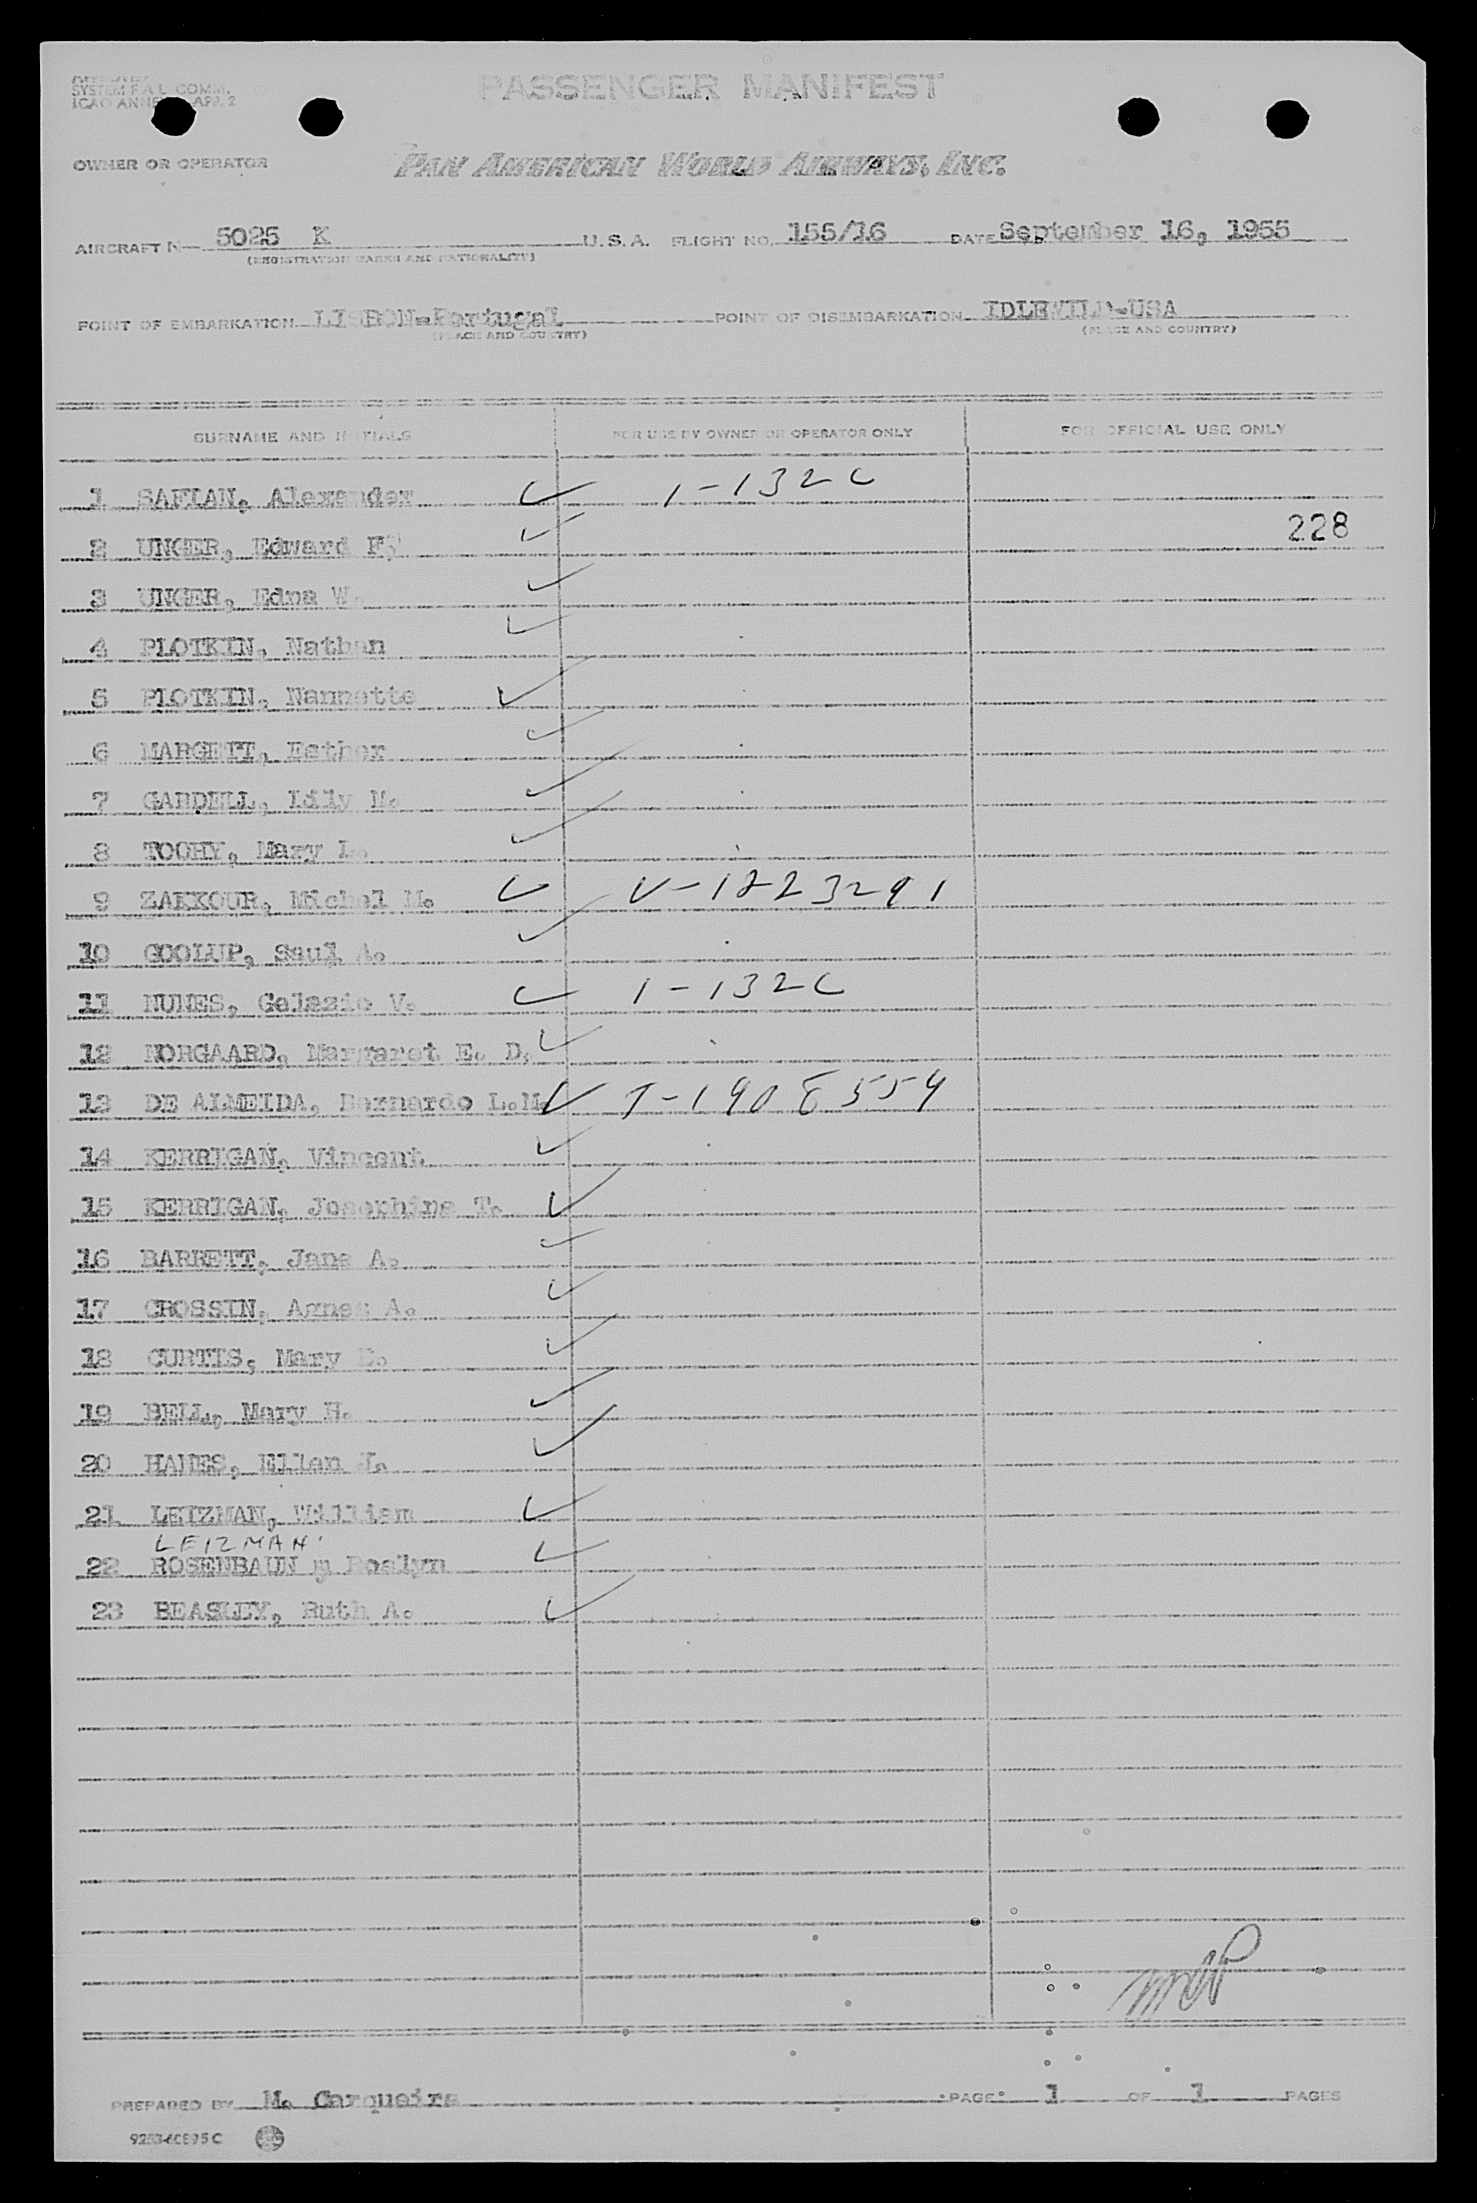 SYSTEM F.A.L. COMM.
ICAO ANNEX APP. 2
PASSENGER MANIFEST
OWNER OR OPERATOR PAN AMERICAN WORLD AIRWAYS, INC.
AIRCRAFT N 5025 K U.S.A. FLIGHT NO. 155/16 DATE September 16, 1955
(REGISTRATION MARKS AND NATIONALITY)
POINT OF EMBARKATION LISBON-Portugal POINT OF DISEMBARKATION IDLEWILD-USA
(PLACE AND COUNTRY) (PLACE AND COUNTRY)
SURNAME AND INITIALS FOR USE BY OWNER OR OPERATOR ONLY FOR OFFICIAL USE ONLY
1 SAFIAN, Alexander ✓ 1-132 C
2 UNGER, Edward F. ✓ 228
3 UNGER, Edna W. ✓
4 PLOTKIN, Nathan ✓
5 PLOTKIN, Nannette ✓
6 MARGEIT, Esther ✓
7 GARDELL, Lily M. ✓
8 TOOHY, Mary L. ✓
9 ZAKKOUR, Michel M. ✓ V-1223291
10 GOOLUP, Saul A. ✓
11 NUNES, Gelazio V. ✓ 1-132 C
12 NORGAARD, Margaret E. D. ✓
13 DE ALMEIDA, Bernardo L.M. ✓ T-1908554
14 KERRIGAN, Vincent ✓
15 KERRIGAN, Josephine T. ✓
16 BARRETT, Jane A. ✓
17 CROSSIN, Agnes A. ✓
18 CURTIS, Mary E. ✓
19 BELL, Mary H. ✓
20 HANES, Ellen J. ✓
21 LEIZMAN, William ✓
LEIZMAN
22 ROSENBAUN, Roslyn ✓
23 BEASLEY, Ruth A. ✓
PREPARED BY M. Cerqueira PAGE 1 OF 1 PAGES